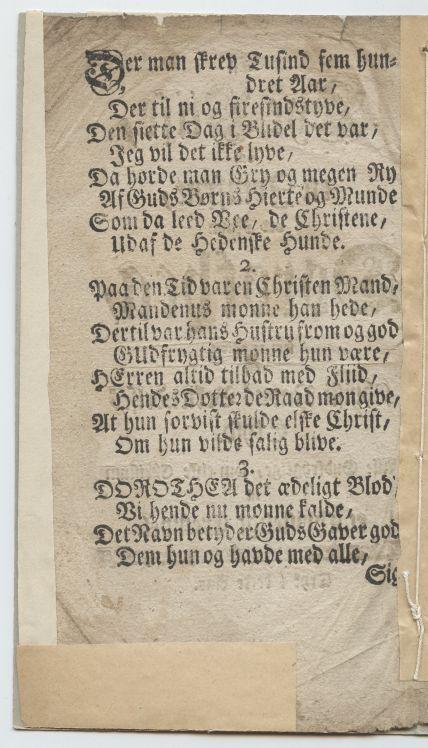 Der man skrev Tusind fem hun-
dret Aar,
Der til ni og firesindstyve,
Den siette Dag i Blidel det var,
Jeg vil det ikke lyve,
Da hørde man Gry og megen Ry
Af Guds Børns Hierte og Munde
Som da leed Vee, de Christene,
Udaf de Hedenske Hunde.
2.
Paa den Tid var en Christen Mand,
Mandenus monne han hede,
Der til var hans Hustru from og god
GUdfrygtig monne hun være,
HErren altid tilbad med Fliid,
Hendes Dotter de Raad mon give,
At hun forvist skulde elske Christ,
Om hun vilde salig blive.
3.
DOROTHEA det ædeligt Blod,
Vi hende nu monne kalde,
Det Navn betyder Guds Gaver god
Dem hun og havde med alle,
Sig